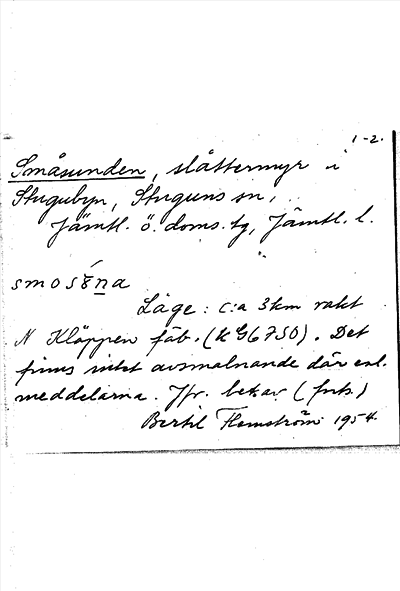 1-2.
Småsunden, slåttermyr i
Stugubyn, Stuguns sn,
Jämtl. ö. doms. tg, Jämtl. l.
Läge: c:a 3km rakt
N Kläppen fäb. (KG6750). Det
finns intet avsmalnande där enl.
meddelarna. Jfr. bekav (forts.)
Bertil Flemström 1954.